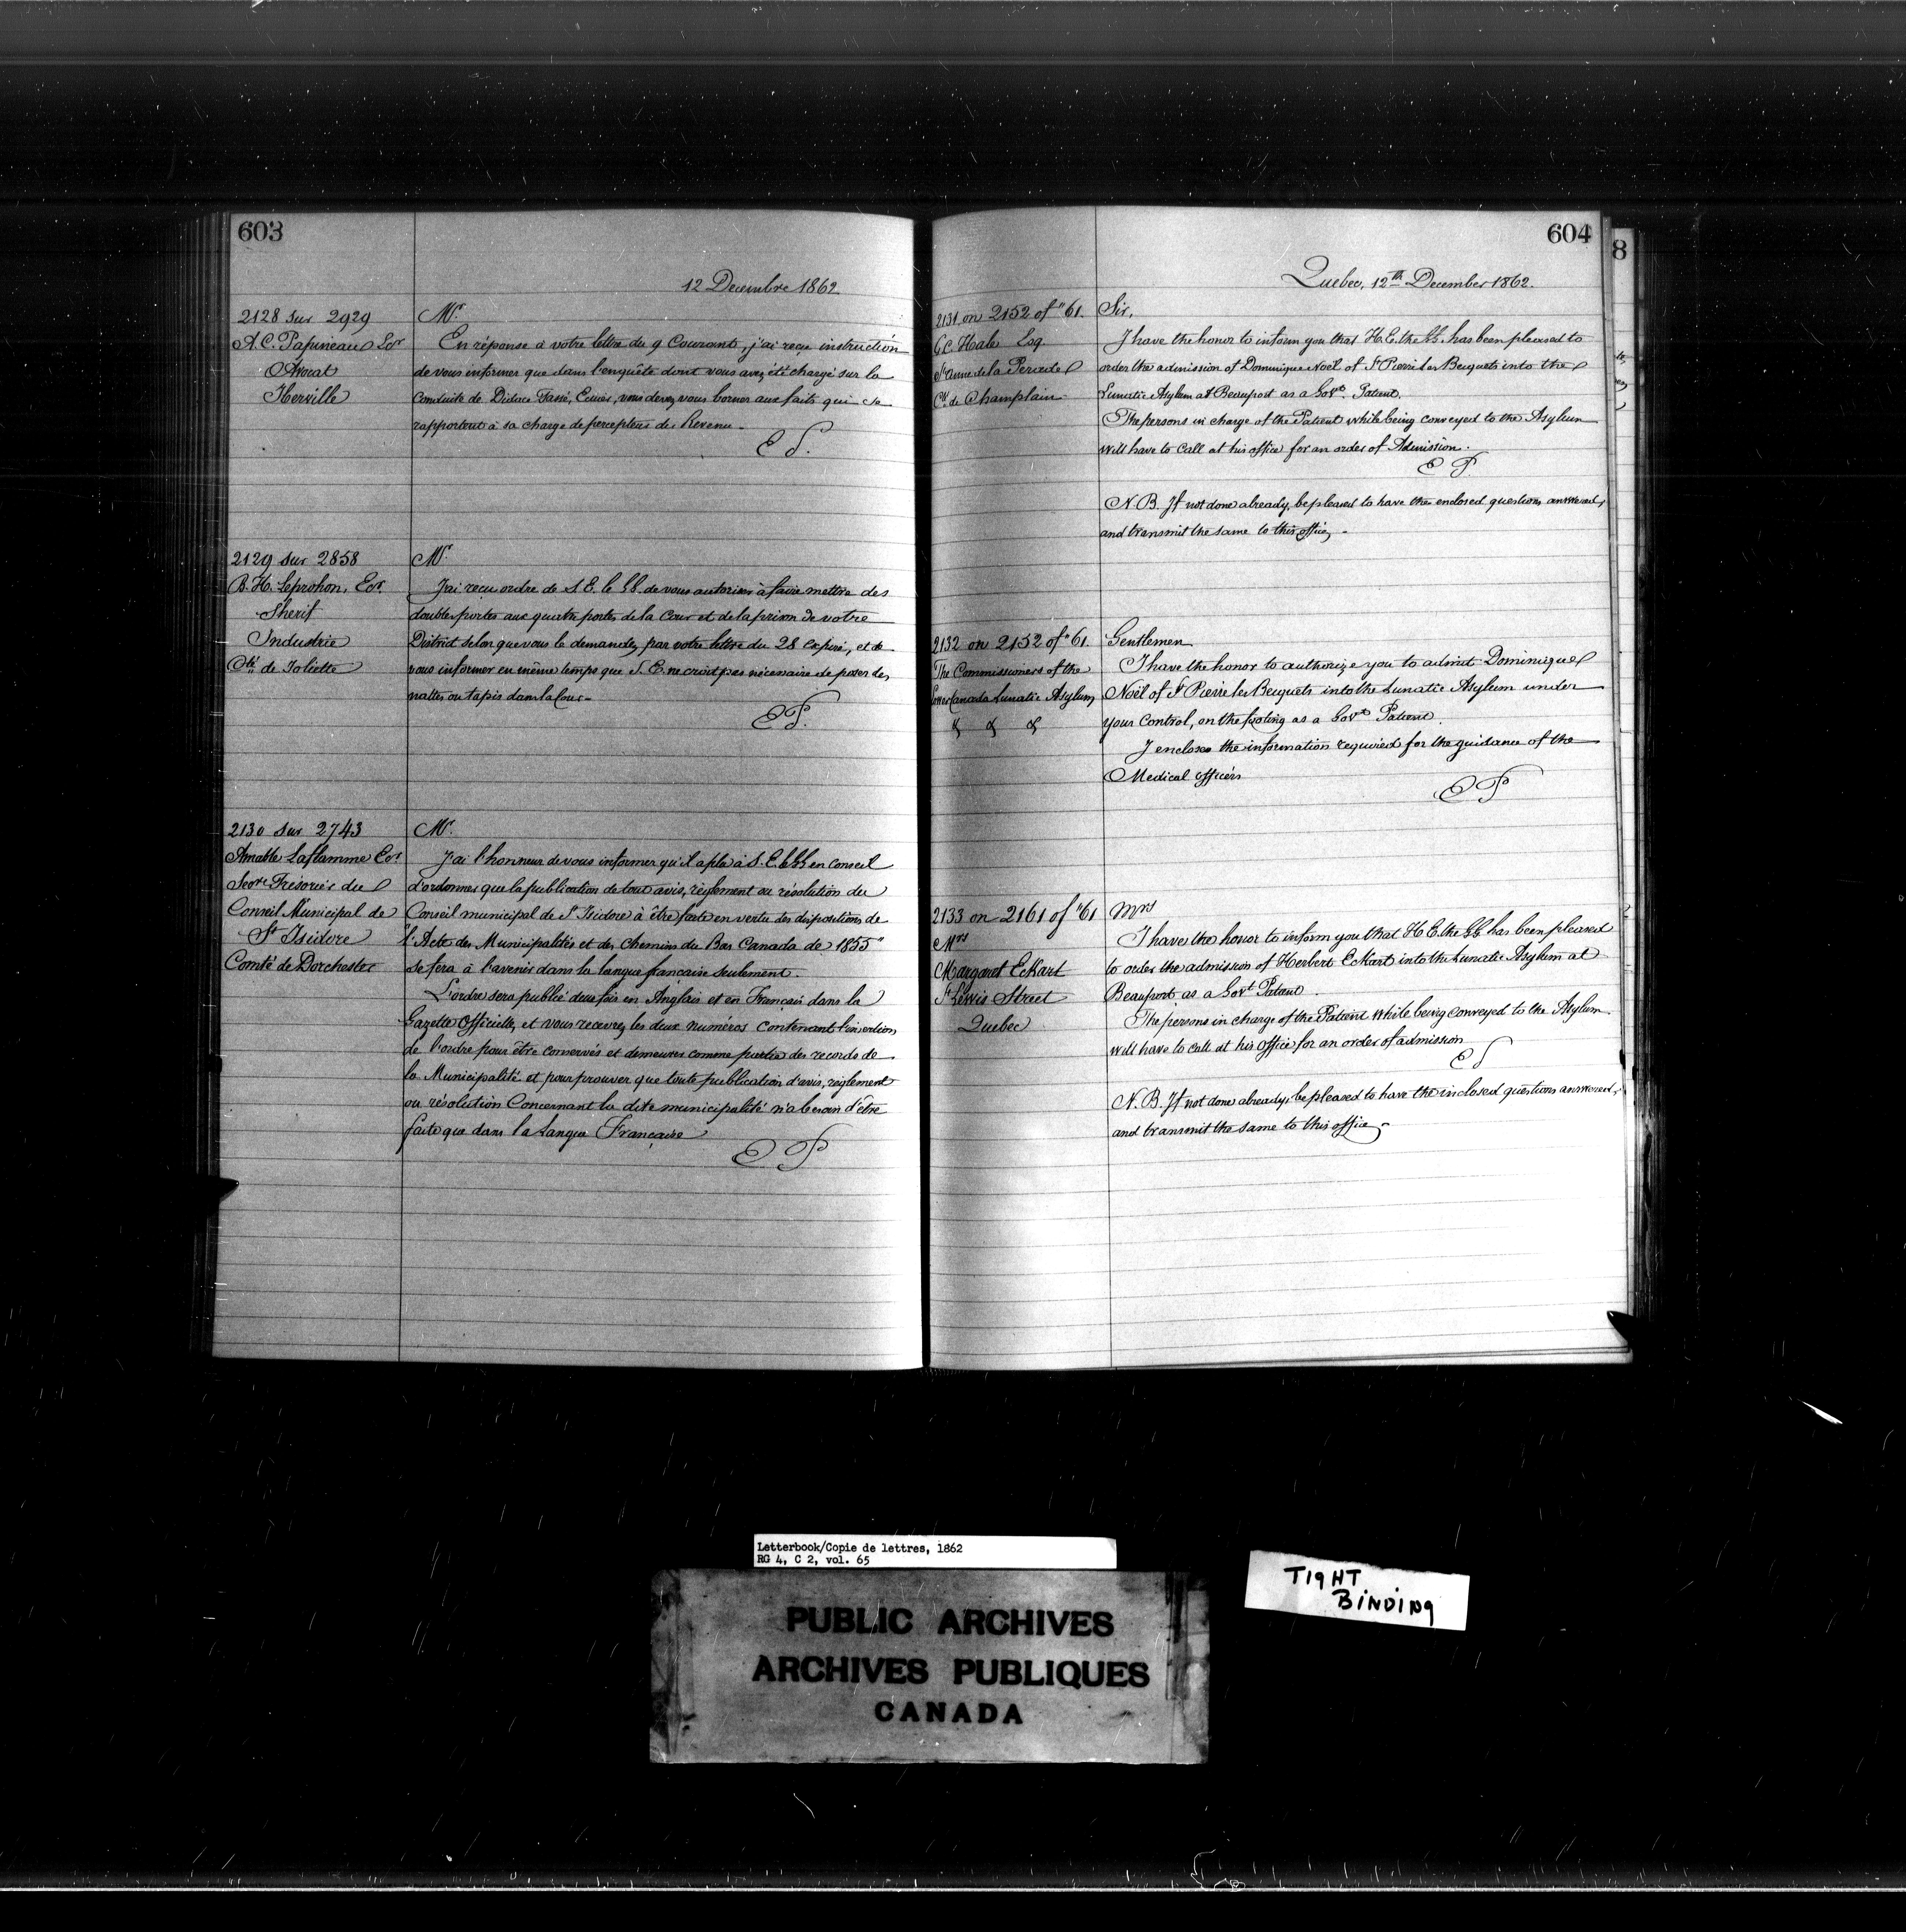 603
12 Decembre 1862
2128 sur 2929
A. C. Papineau Ecr
Avocat
Iberville
Mr.
En réponse à votre lettre du 9 Courant, j'ai reçu instruction
de vous informer que dans l'enquête dont vous avez été chargé sur la
conduite de Didace Tassé, Ecuier, vous devez vous borner aux faits qui se
rapportent à sa charge de percepteur du Revenu.
E P.
2129 sur 2858
B. H. Leprohon, Ecr.
Sherif
Industrie
Cté. de Joliette
Mr.
J'ai reçu ordre de S. E. le GG. de vous autoriser à faire mettre des
doubles portes aux quatre portes de la Cour et de la prison de votre
District selon que vous le demandez par votre lettre du 28 expiré, et de
vous informer en même temps que S. E. ne croit pas nécessaire de poser des
nattes ou tapis dans la Cour -
E P.
2130 sur 2743
Amable Laflamme Ecr
Secre. Trésorier du
Conseil Municipal de
St Isidore
Comté de Dorchester
Mr.
J'ai l'honneur de vous informer qu'il a plu à S. E. le GG en Conseil
d'ordonner que la publication de tout avis, règlement ou résolution du
Conseil municipal de St Isidore à être faite en vertu des dispositions de
"l'Acte des Municipalités et des chemins du Bas Canada de 1855"
se fera à l'avenir dans la langue française seulement.
L'ordre sera publié deux fois en Anglais et en Français dans la
Gazette Officielle, et vous recevrez les deux numéros contenant l'insertion
de l'ordre pour être conservés et demeurer comme partie des records de
la Municipalité et pour prouver que toute publication d'avis, règlement
ou résolution Concernant la dite municipalité n'a besoin d'être
faite que dans la Langue Française
E P
604
Quebec, 12th December 1862.
2131 on 2152 of "61.
G. C. Hale Esq
St Anne de la Perade
Cté. de Champlain
Sir,
I have the honor to inform you that H. E. the GG. has been pleased to
order the admission of Dominique Noël of St Pierre les Becquets into the
Lunatic Asylum at Beauport as a Govt. Patient.
The persons in charge of the Patient while being conveyed to the Asylum
will have to call at his office for an order of Admission.
E P
N. B. If not done already, be pleased to have the enclosed questions answered,
and transmit the same to this office -
2132 on 2152 of "61.
The Commissioners of the
Lower Canada Lunatic Asylum
& & &
Gentlemen
I have the honor to authorize you to admit Dominique
Noël of St Pierre les Becquets into the Lunatic Asylum under
your Control, on the footing as a Govt. Patient.
I enclose the information required for the guidance of the
Medical officers
E P
2133 on 2161 of "61
Mrs
Margaret Eckart
St Lewis Street
Quebec
Mrs
I have the honor to inform you that H E. the GG. has been pleased
to order the admission of Herbert Eckart into the Lunatic Asylum at
Beauport as a Govt Patient.
The persons in charge of the Patient while being conveyed to the Asylum
will have to call at his Office for an order of admission
E P
N. B. If not done already, be pleased to have the inclosed questions answered,
and transmit the same to this office -
8
Letterbook/Copie de lettres, 1862
RG 4, C 2, vol. 65
TIGHT
BINDING
PUBLIC ARCHIVES
ARCHIVES PUBLIQUES
CANADA